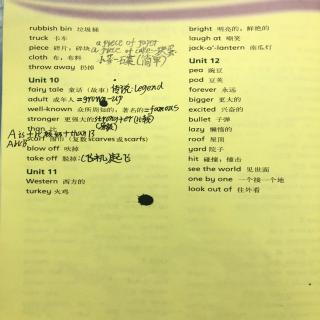 rubbish bin 垃圾桶
truck 卡车
piece 碎片，碎块 a piece of paper
a piece of cake 一块蛋
cloth 布，布料 小菜一碟(简单)
throw away 扔掉
Unit 10
fairy tale 童话（故事）传说: Legend
adult 成年人 =grown-up
well-known 众所周知的，著名的 =famous
stronger 更强大的
than 比
A is +比较级+than B
scarf 围巾（复数scarves或scarfs）
blow off 吹掉
take off 脱掉；(飞机)起飞
Unit 11
Western 西方的
turkey 火鸡
bright 明亮的，鲜艳的
laugh at 嘲笑
jack-o'-lantern 南瓜灯
Unit 12
pea 豌豆
pod 豆荚
forever 永远
bigger 更大的
excited 兴奋的
bullet 子弹
lazy 懒惰的
roof 屋顶
yard 院子
hit 碰撞，撞击
see the world 见世面
one by one 一个接一个地
look out of 往外看